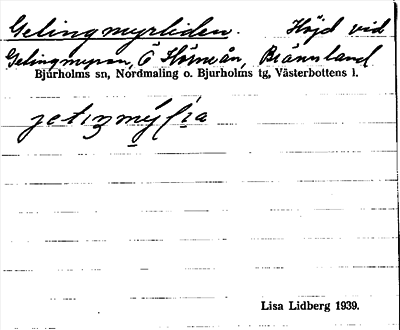 Gelingmyrliden. Höjd vid
Gelingmyran, Ö Hörneån, Brännland
Bjurholms sn, Nordmaling o. Bjurholms tg, Västerbottens l.
Lisa Lidberg 1939.